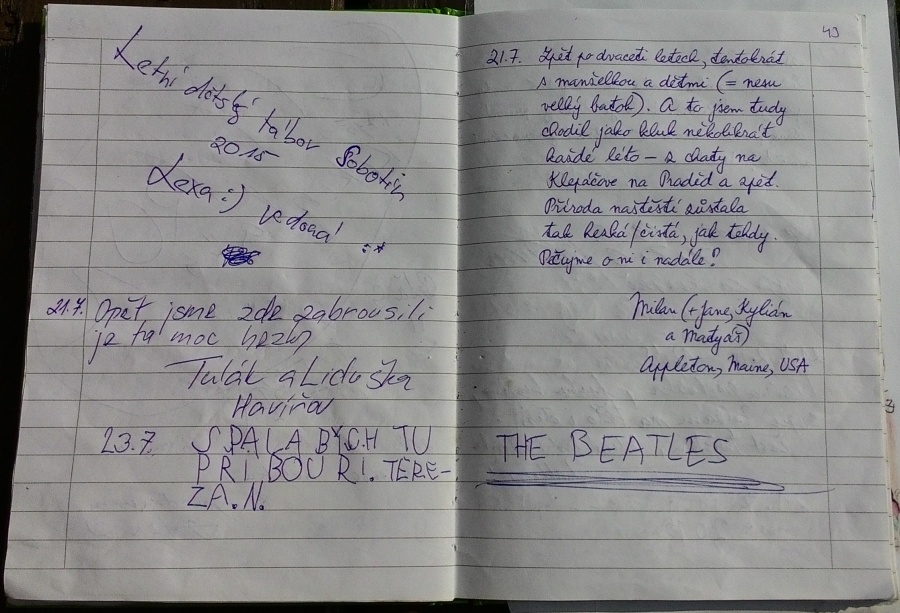 Letní dětský tábor Sobotín
2015
Lexa :) vedoucí :*
21.7. Opět jsme zde zabrousili
je tu moc hezky
Tulák a Liduška
Havířov
23.7. SPALA BYCH TU
PŘI BOUŘI. TERE-
ZA.N.
43
21.7. Zpět po dvaceti letech, tentokrát
s manželkou a dětmi (= nesu
velký batoh). A to jsem tudy
chodil jako kluk několikrát
každé léto – z chaty na
Klepáčově na Praděd a zpět.
Příroda naštěstí zůstala
tak hezká/čistá, jak tehdy.
Pečujme o ni i nadále!
Milan (+ Jane, Kylián
a Matyáš)
Appleton, Maine, USA
THE BEATLES